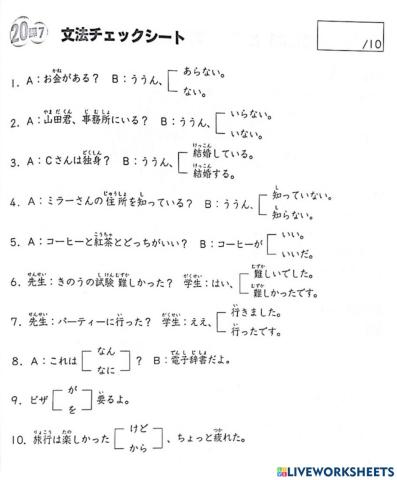 20課7 文法チェックシート
/10
1. A：お金がある？ B：ううん、 あらない。
ない。
2. A：山田君、事務所にいる？ B：ううん、 いらない。
いない。
3. A：Cさんは独身？ B：ううん、 結婚している。
結婚する。
4. A：ミラーさんの住所を知っている？ B：ううん、 知っていない。
知らない。
5. A：コーヒーと紅茶とどっちがいい？ B：コーヒーが いい。
いいだ。
6. 先生：きのうの試験難しかった？ 学生：はい、 難しいでした。
難しかったです。
7. 先生：パーティーに行った？ 学生：ええ、 行きました。
行ったです。
8. A：これは なん ？ B：電子辞書だよ。
なに
9. ビザ が 要るよ。
を
10. 旅行は楽しかった けど 、ちょっと疲れた。
から
LIVEWORKSHEETS